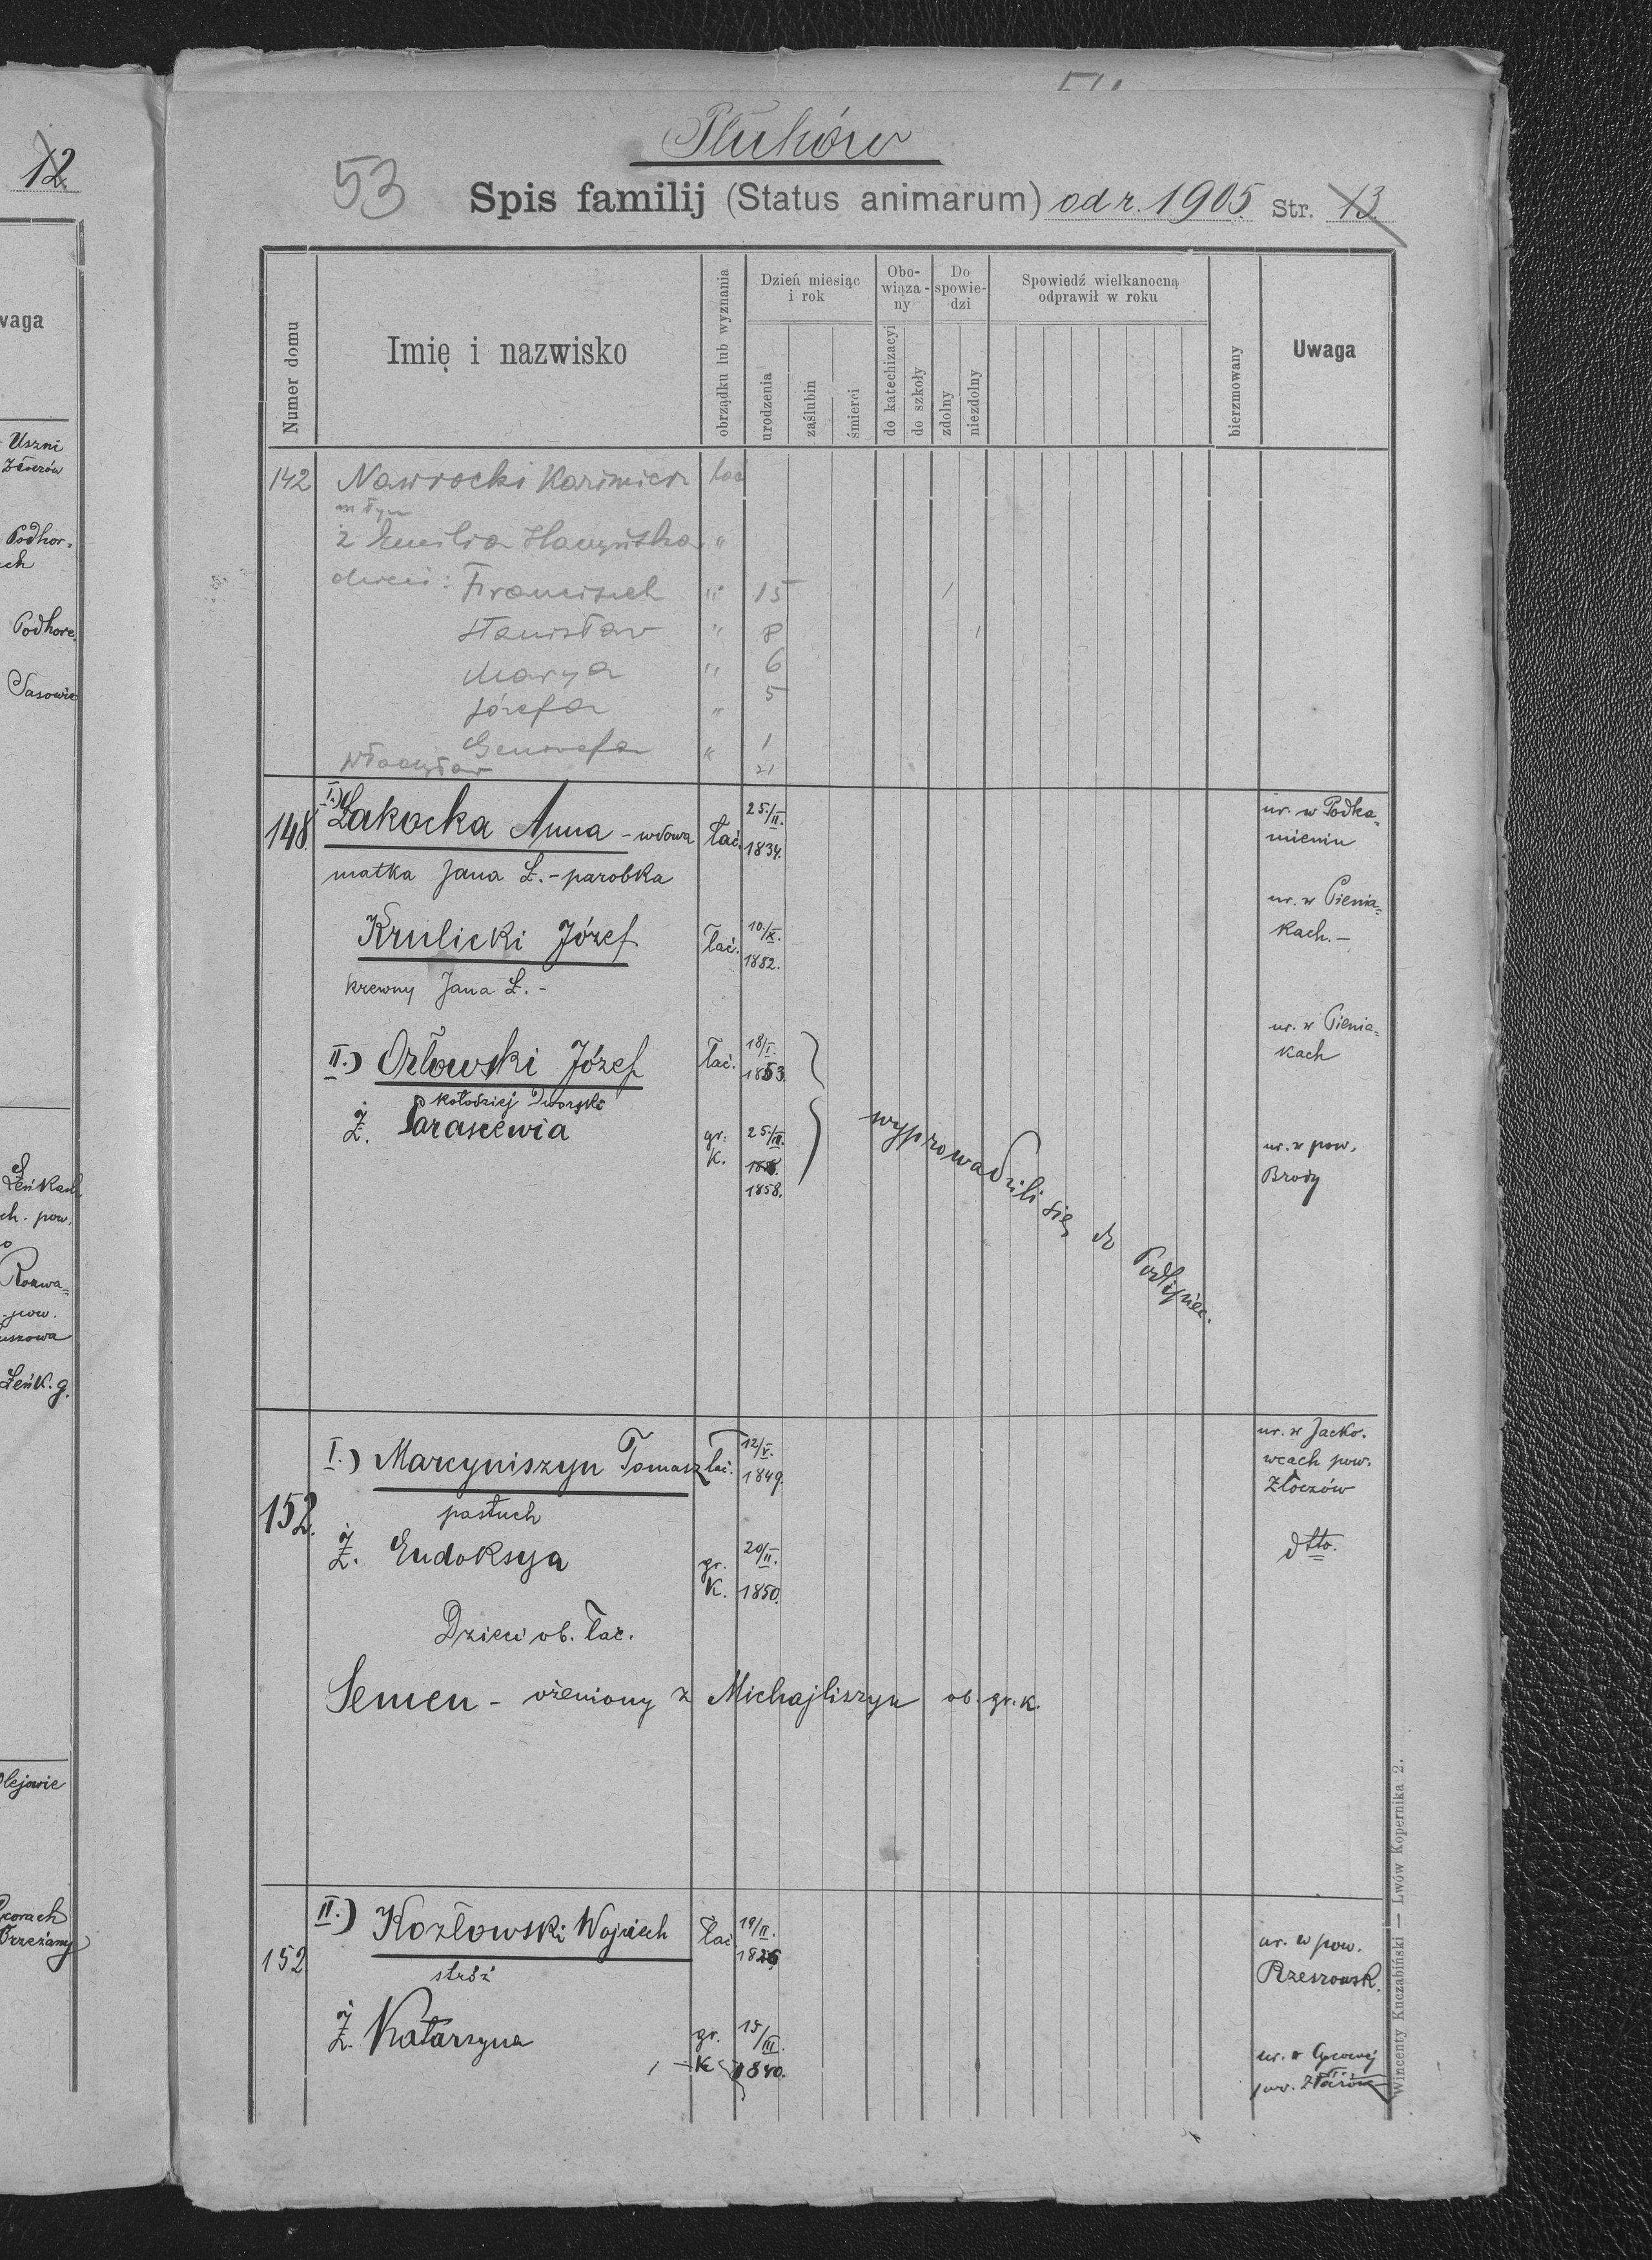 12
waga
Uszni
Złoczów
Podhor=
ach
Podhorc.
Sasowie
Leńkach
ch. pow.
Rozwa=
pow.
Leńk. g.
Olejowie
Płuhów
53 Spis familij (Status animarum) od r. 1905 Str. 13
Numer domu
Imię i nazwisko
obrządku lub wyznania
Dzień miesiąc i rok
urodzenia
zaślubin
śmierci
Obo-wiąza-ny
do katechizacyi
do szkoły
Do spowie-dzi
zdolny
niezdolny
Spowiedź wielkanocną odprawił w roku
bierzmowany
Uwaga
142 Nawrocki Kazimierz łac
młyn
ż Emilia "
dzieci: Franciszek " 15 /
Stanisław " 8 /
Marya " 6
Józefa " 5
Genowefa " 1
Władysław 21
148. I.) Łakocka Anna - wdowa łać. 25./II. 1834. ur. w Podka=
mieniu
matka Jana Ł. - parobka
Krulicki Józef łać. 10./IX. 1882. ur. w Pienia=
kach. -
krewny Jana Ł. -
II.) Orłowski Józef łać. 18/I. 1853. ur. w Pienia=
kach
kołodziej dworski
Ż. Parascewia gr: k. 25/III. 1858. ur. w pow.
Brody
wyprowadzili się do Podlipiec.
152. I.) Marcyniszyn Tomasz łac. 12/V. 1849. ur. w Jacko.
wcach pow.
Złoczów
pastuch
Ż. Eudoksya gr. k. 20/II. 1850. dtto.
Dzieci ob. łac.
Semen - ożeniony z Michajliszyn ob. gr. k.
152 II.) Kozłowski Wojciech łac 19/II. 1826 ur. w pow.
Rzeszowsk.
stróż
Ż. Katarzyna gr. k 15/III. 1840. ur. w
pow. Złoczów
Wincenty Kuczabiński — Lwów Kopernika 2.